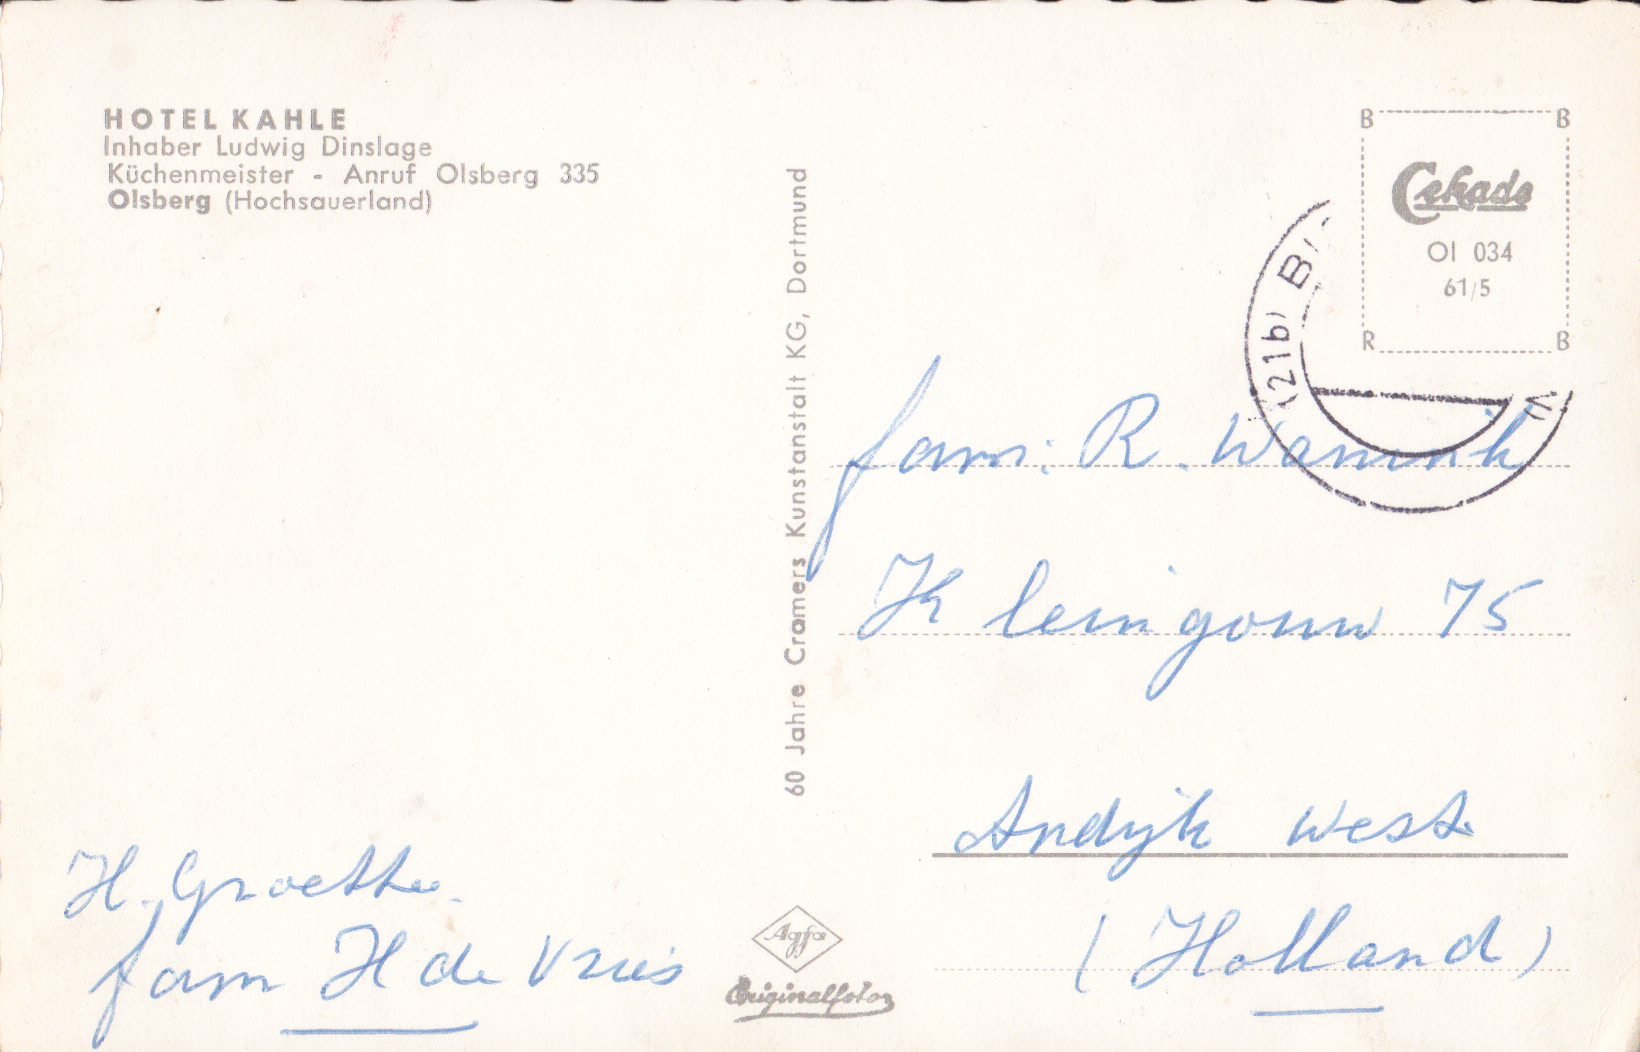 HOTEL KAHLE
Inhaber Ludwig Dinslage
Küchenmeister - Anruf Olsberg 335
Olsberg (Hochsauerland)
60 Jahre Cramers Kunstanstalt KG, Dortmund
B B
Cekade
Ol 034
61/5
R B
(21b) B
fam: R. Wamink
Kleingouw 75
Andijk West
(Holland)
H. Groeten.
fam H de Vries
Agfa
Originalfotos